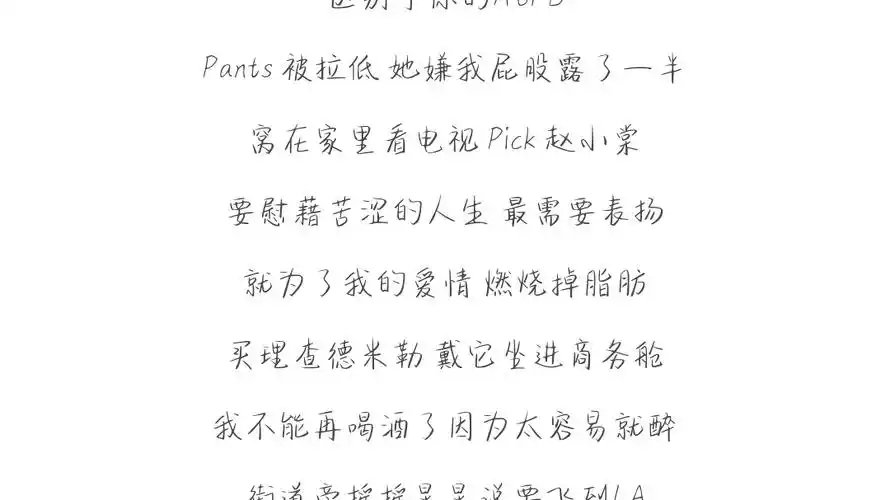 Pants 被拉低 她嫌我屁股露了一半
窝在家里看电视 Pick 赵小棠
要慰藉苦涩的人生 最需要表扬
就为了我的爱情 燃烧掉脂肪
买理查德米勒 戴它坐进商务舱
我不能再喝酒了因为太容易就醉